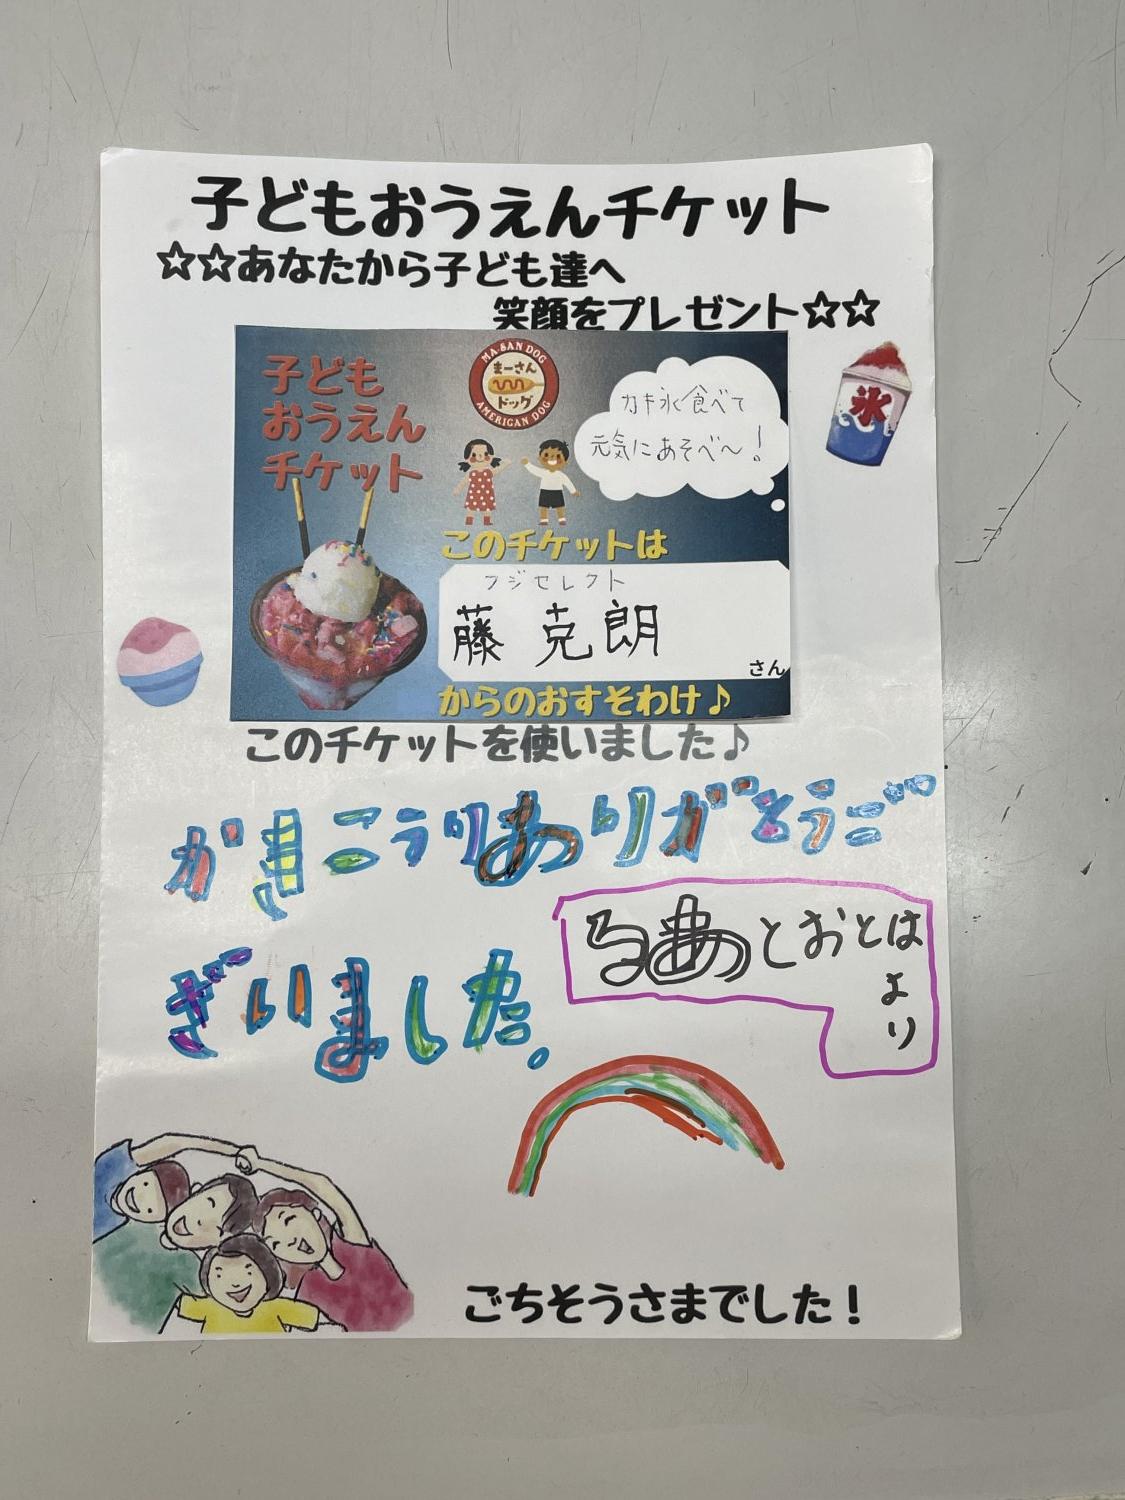 子どもおうえんチケット
☆☆あなたから子ども達へ
笑顔をプレゼント☆☆
子ども
おうえん
チケット
MA-SAN DOG
まーさん
ドッグ
AMERICAN DOG
カキ氷食べて
元気にあそべ～!
氷
このチケットは
フジセレクト
藤 克朗
さん
からのおすそわけ♪
このチケットを使いました♪
かきこうりありがとうご
ざいました。
とおとは
より
ごちそうさまでした!